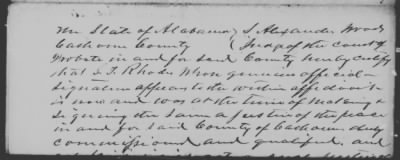 The State of Alabama } I Alexander Woods
Calhoun County } Judge of the court of
Probate in and for said County hereby certify
that S. T. Rhods whose genuine official
signature appears to the within affidavit
is now and was at the time of making &
signing the same a justice of the peace
in and for said County of Calhoun duly
commissioned and qualified. and